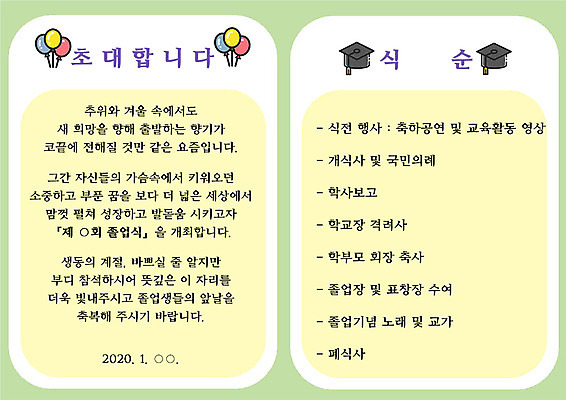 초대합니다
추위와 겨울 속에서도
새 희망을 향해 출발하는 향기가
코끝에 전해질 것만 같은 요즘입니다.
그간 자신들의 가슴속에서 키워오던
소중하고 부푼 꿈을 보다 더 넓은 세상에서
맘껏 펼쳐 성장하고 발돋움 시키고자
「제 ○회 졸업식」을 개최합니다.
생동의 계절, 바쁘실 줄 알지만
부디 참석하시어 뜻깊은 이 자리를
더욱 빛내주시고 졸업생들의 앞날을
축복해 주시기 바랍니다.
2020. 1. ○○.
식 순
- 식전 행사 : 축하공연 및 교육활동 영상
- 개식사 및 국민의례
- 학사보고
- 학교장 격려사
- 학부모 회장 축사
- 졸업장 및 표창장 수여
- 졸업기념 노래 및 교가
- 폐식사